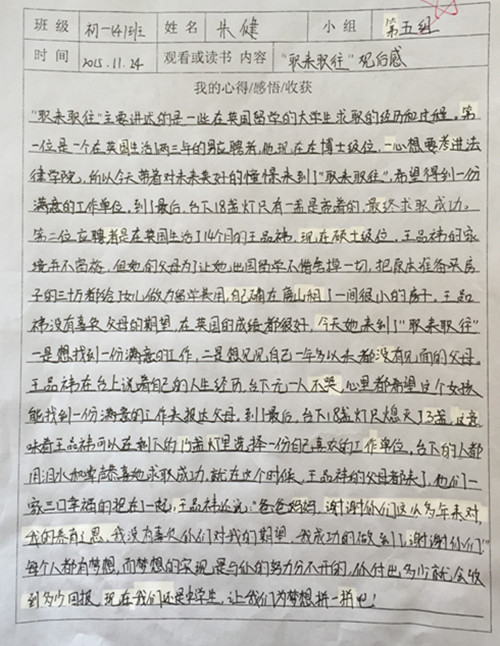 班级 初一(4)班 姓名 朱健 小组 第五组
时间 2015.11.24 观看或读书 内容 "职来职往"观后感
我的心得/感悟/收获
"职来职往"主要讲述的是一些在英国留学的大学生求职的经历和过程。第
一位是一个在英国生活两三年的男应聘者,他现在在博士级位,一心想要考进法
律学院,所以今天带着对未来美好的憧憬来到了"职来职往",希望得到一份
满意的工作单位,到了最后,台下18盏灯只有一盏是亮着的,最终求职成功。
第二位应聘者是在英国生活了14个月的王品祎,现在硕士级位,王品祎的家
境并不富裕,但她的父母为了让她出国留学不惜舍掉一切,把原来准备买房
子的三十万都给女儿做为留学费用,自己确在唐山租了一间很小的房子。王品
祎没有辜负父母的期望,在英国的成绩都很好,今天她来到了"职来职往"
一是想找到一份满意的工作,二是想见见自己一年多以来都没有见面的父母。
王品祎在台上说着自己的人生经历,台下无一人不哭,心里都希望这个女孩
能找到一份满意的工作去报达父母。到了最后,台下18盏灯只熄灭了3盏,这意
味着王品祎可以在剩下的15盏灯里选择一份自己喜欢的工作单位,台下的人都
用泪水和掌声恭喜她求职成功,就在这个时候,王品祎的父母都来了,他们一
家三口幸福的抱在一起,王品祎还说:"爸爸妈妈,谢谢你们这么多年来对
我的养育之恩,我没有辜负你们对我的期望,我成功的做到了,谢谢你们!"
每个人都有梦想,而梦想的实现,是与你的努力分不开的,你付出多少就会收
到多少回报,现在我们还是中学生,让我们为梦想拼一拼吧!